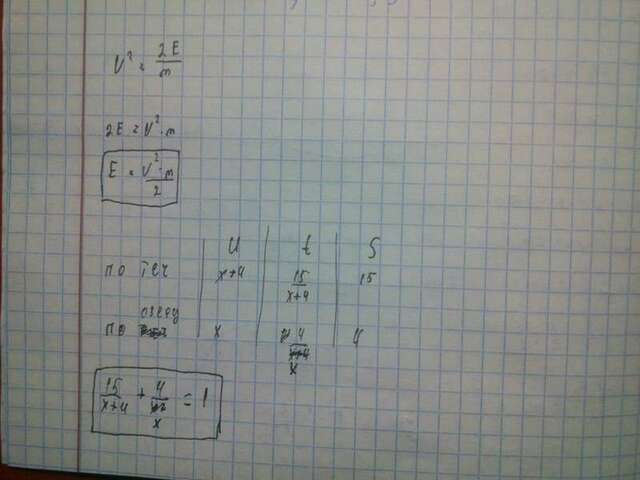 V² = 2E/m
2E = V² · m
E = V² · m / 2
U t S
по теч x+4 15/x+4 15
по озеру x 4/x 4
15/x+4 + 4/x = 1